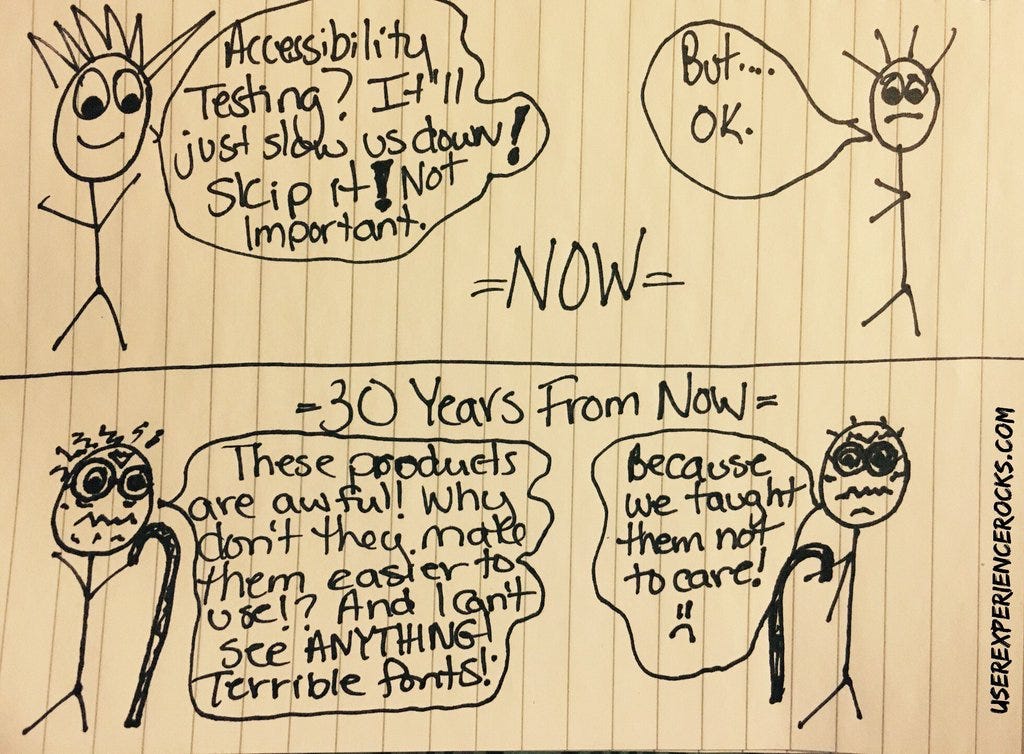 Accessibility
Testing? It"ll
just slow us down!
Skip it! Not
Important.
But....
OK.
=NOW=
=30 Years From Now=
These products
are awful! Why
don't they make
them easier to
use!? And I can't
see ANYTHING!
Terrible fonts!
Because
we taught
them not
to care!
USEREXPERIENCEROCKS.COM